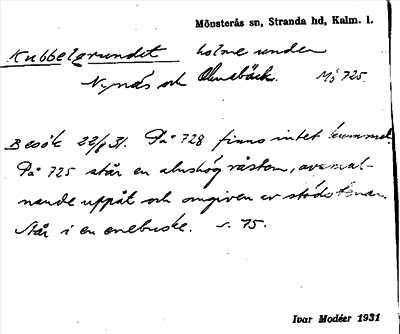 Mönsterås sn, Stranda hd, Kalm. l.
Kubbelgrundet holme under
Nynäs och Olmebäck. Mö 725.
Besök 22/8 31. På 728 finns intet kummel.
På 725 står en alnshög råsten, avsmal-
nande uppåt och omgiven av stödstenar.
Står i en enebuske. s. 75.
Ivar Modéer 1931